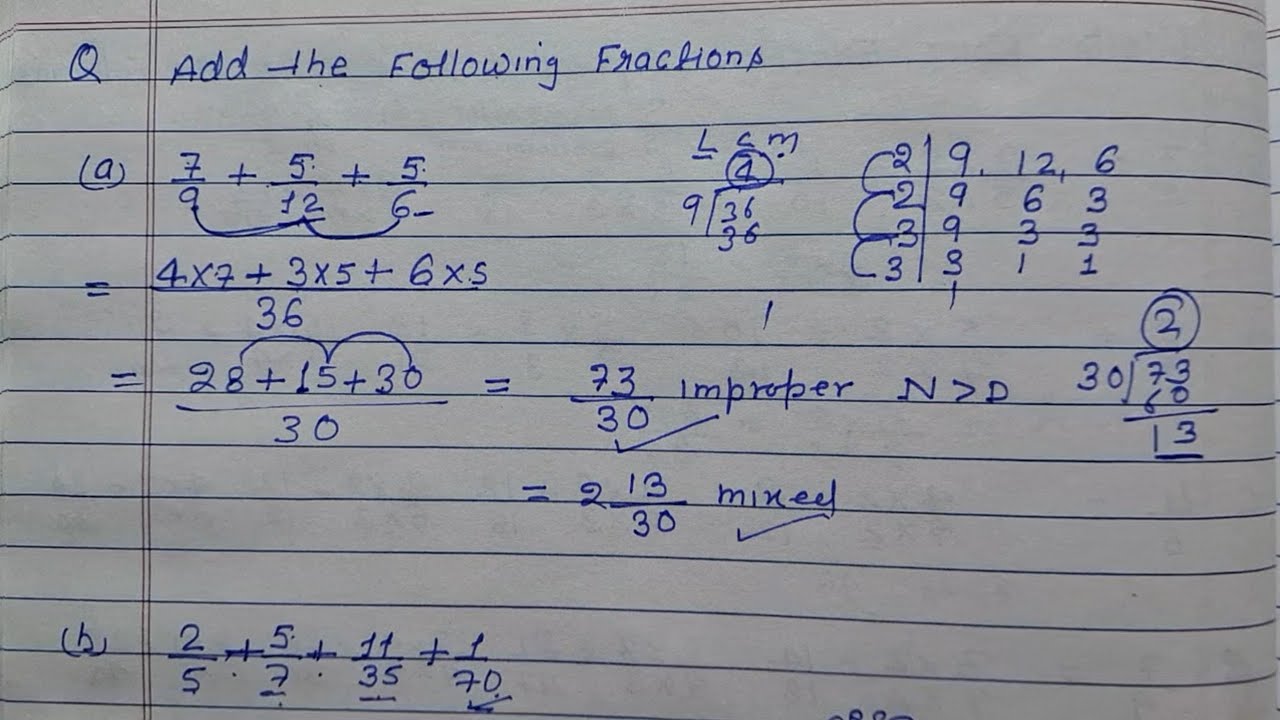 Q Add the Following Fractions
(a) 7/9 + 5/12 + 5/6
L C M
4
9 36
36
2 | 9, 12, 6
2 | 9 6 3
3 | 9 3 3
3 | 3 1 1
1
= 4×7 + 3×5 + 6×5 / 36
1
= 28+15+30 / 30 = 73/30 improper N>D
2
30 73
60
13
= 2 13/30 mixed
(b) 2/5 + 5/7 + 11/35 + 1/70